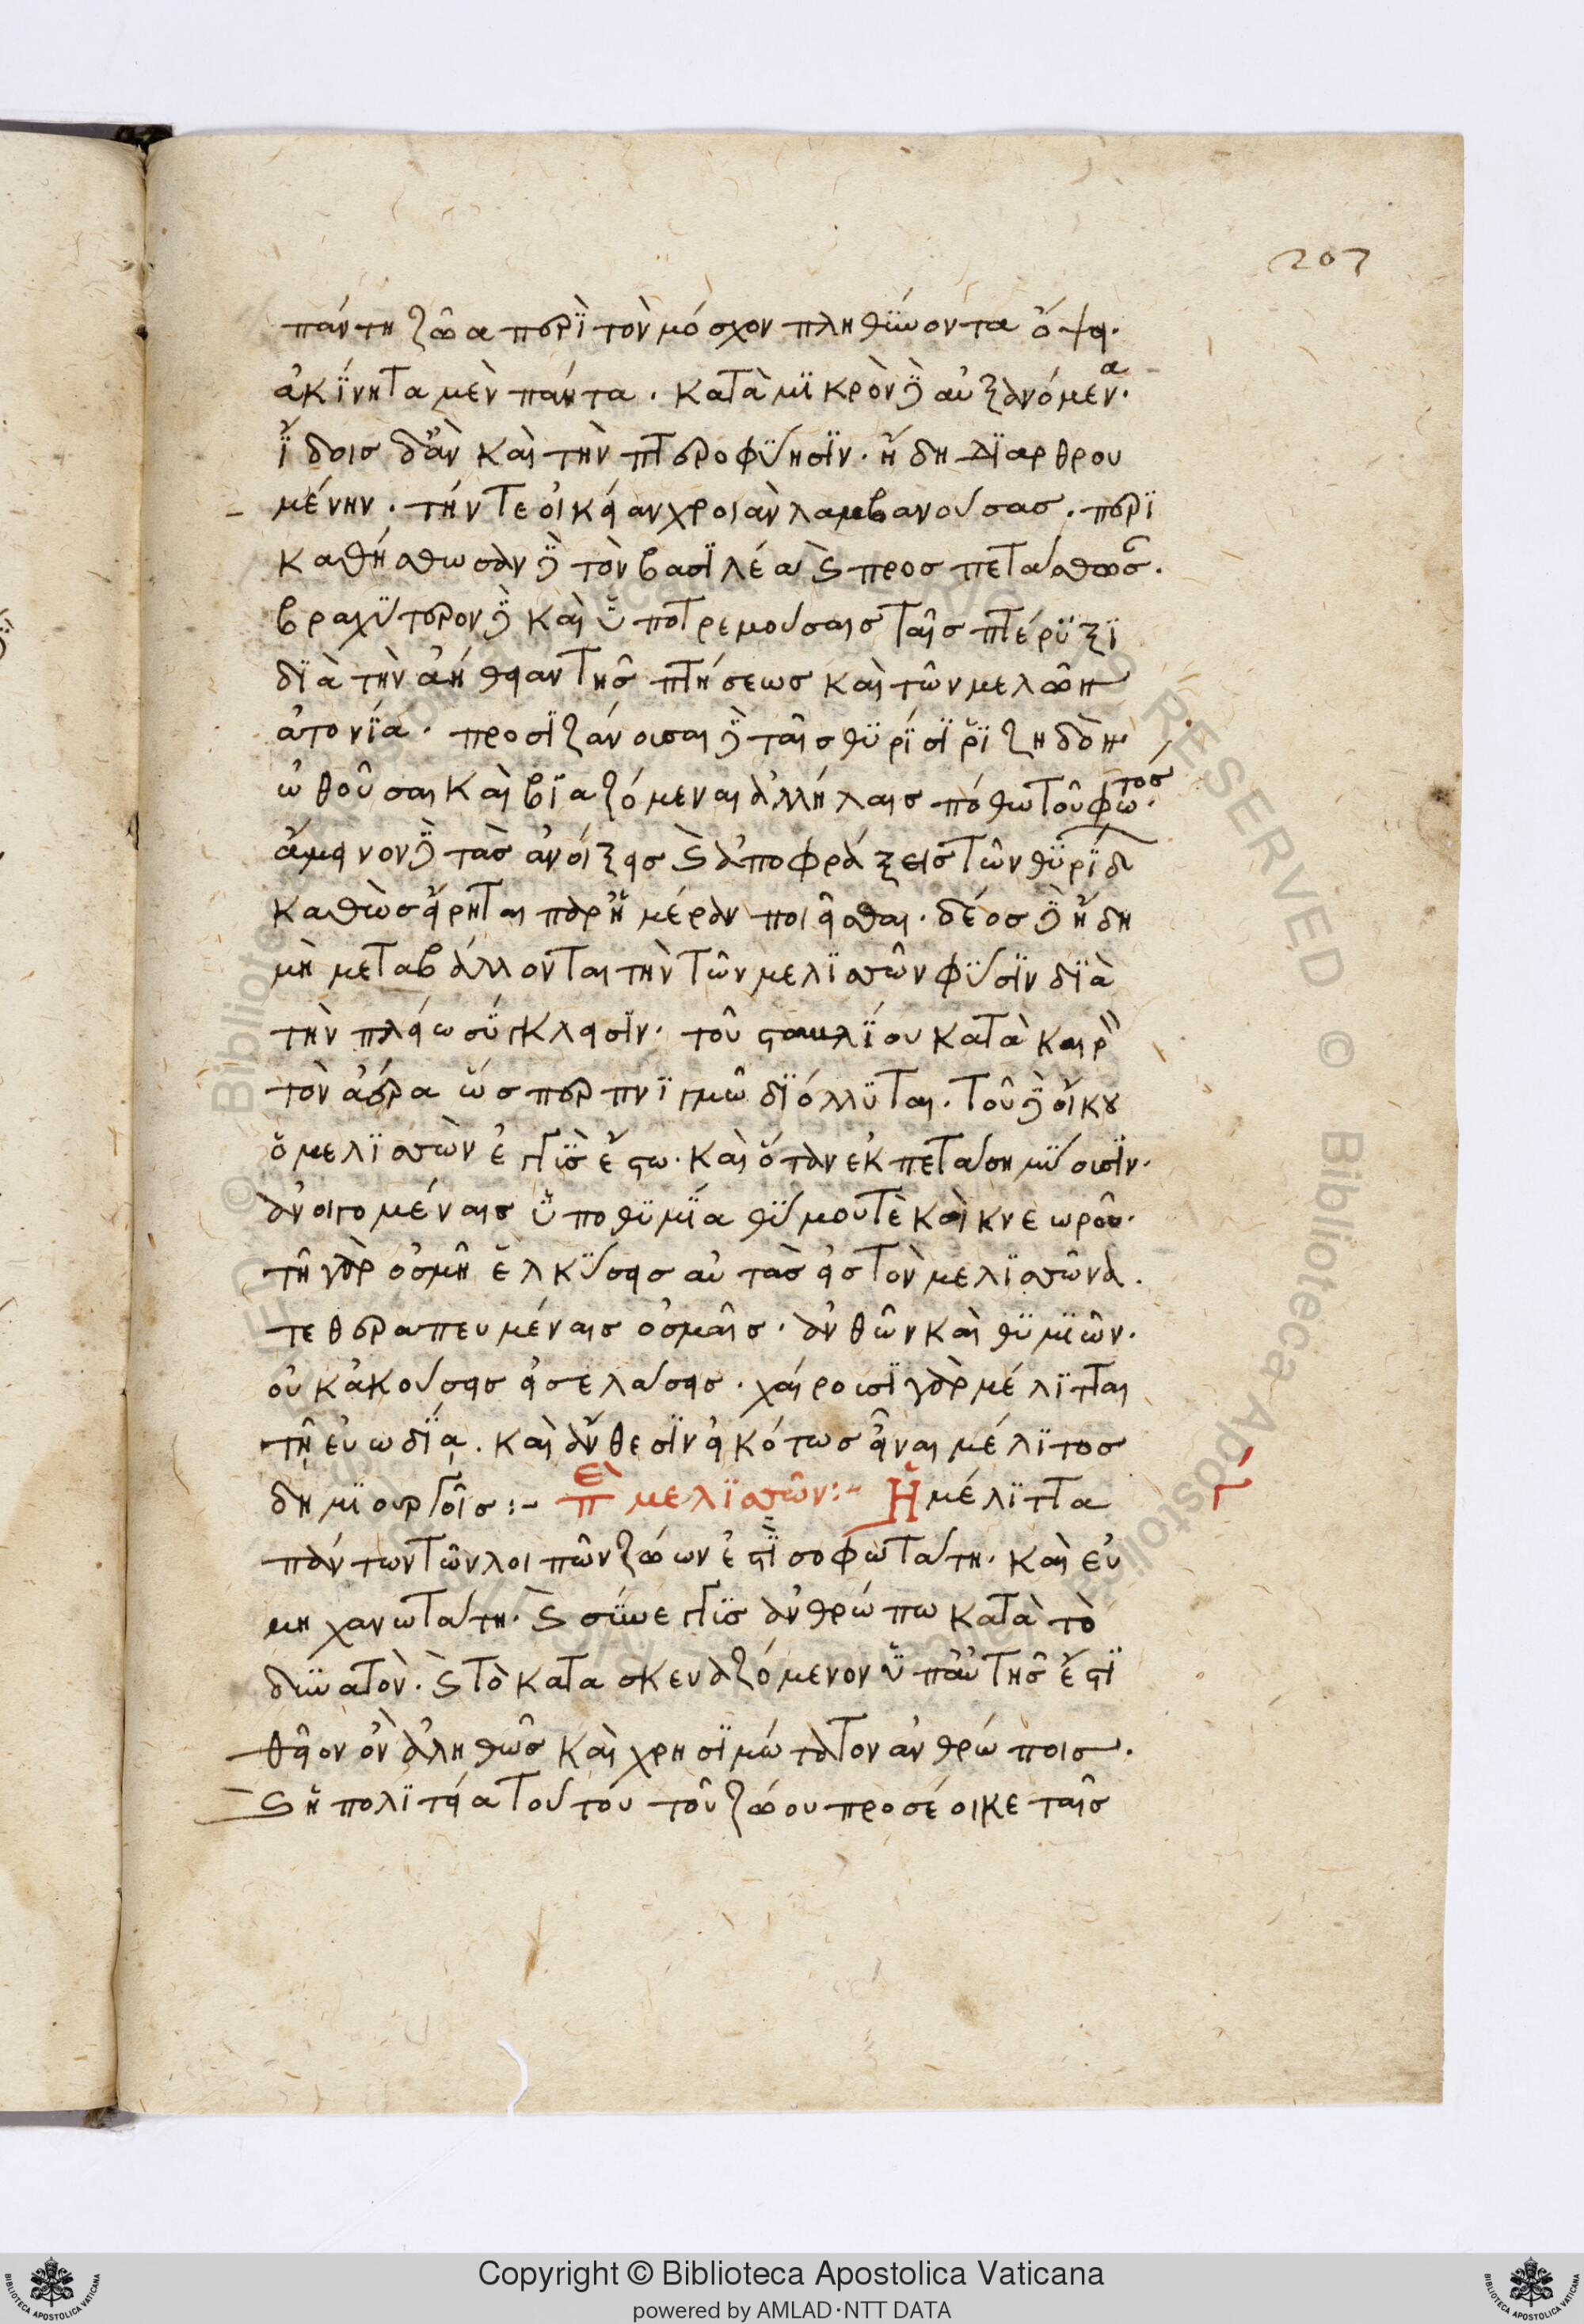 207
πάντη ζῶα περὶ τὸν μόσχον πληθύνοντα ὄψει·
ἀκίνητα μὲν πάντα. κατὰ μικρὸν δὲ αὐξανόμενα·
ἴδοις δ' ἂν καὶ τὴν πτεροφύησιν· ἤδη διαρθρου
μένην. τήν τε οἰκείαν χροιὰν λαμβανούσας. περι
καθῆσθωσαν δὲ τὸν βασιλέα καὶ προσπετάσθωσ.
βραχύτερον δὲ καὶ ὑποτρεμούσαις ταῖς πτέρυξι
διὰ τὴν ἀήθειαν τῆς πτήσεως καὶ τῶν μελῶν
ἀτονία. προσιζάνουσαι δὲ ταῖς θυρίσι ῥιζηδὸν
ὠθοῦσαι καὶ βιαζόμεναι ἀλλήλαις πόθω τοῦ φωτός·
ἄμεινον δὲ τὰς ἀνοίξεις καὶ ἀποφράξεις τῶν θυρίδ
καθὼς εἴρηται παρ' ἡμέραν ποιεῖσθαι. δέος δὲ ἤδη
μὴ μεταβάλλονται τὴν τῶν μελισσῶν φύσιν διὰ
τὴν πλείω σύγκλεισιν. τοῦ γαυλίου κατὰ καιρ
τὸν ἀέρα ὥσπερ πνιγμῶ διόλλυται. τοῦ δὲ οἴκου
ὁ μελισσὼν ἐγγὺς ἔστω. καὶ ὅταν ἐκπετάση μύσουσιν·
ἀνοιγομέναις ὑποθυμία θύμου τὲ καὶ κνεώρου·
τῆ γὰρ ὀσμῆ ἑλκύσεις αὐτὰς εἰς τὸν μελισσῶνα.
τεθεραπευμέναις ὀσμαῖς. ἀνθῶν καὶ θυμιῶν.
οὐκ ἀκούσεις εἰσελάσεις. χαίρουσι γὰρ μέλιτται
τῆ εὐωδία. καὶ ἄνθεσιν εἰκότως εἶναι μέλιτος
δημιουργοῖς:- Περὶ μελισσῶν:- Ἡ μέλιττα Γ
πάντων τῶν λοιπῶν ζώων ἐστὶ σοφωτάτη. καὶ εὐ
μηχανωτάτη. καὶ σύνεγγυς ἀνθρώπω κατὰ τὸ
δυνατὸν. καὶ τὸ κατασκευαζόμενον ὑπ' αὐτῆς ἔστι
θεῖον ὂν ἀληθῶς καὶ χρησιμώτατον ἀνθρώποις.
καὶ ἡ πολιτεία τούτου τοῦ ζώου προσέοικε ταῖς
Copyright © Biblioteca Apostolica Vaticana
powered by AMLAD·NTT DATA